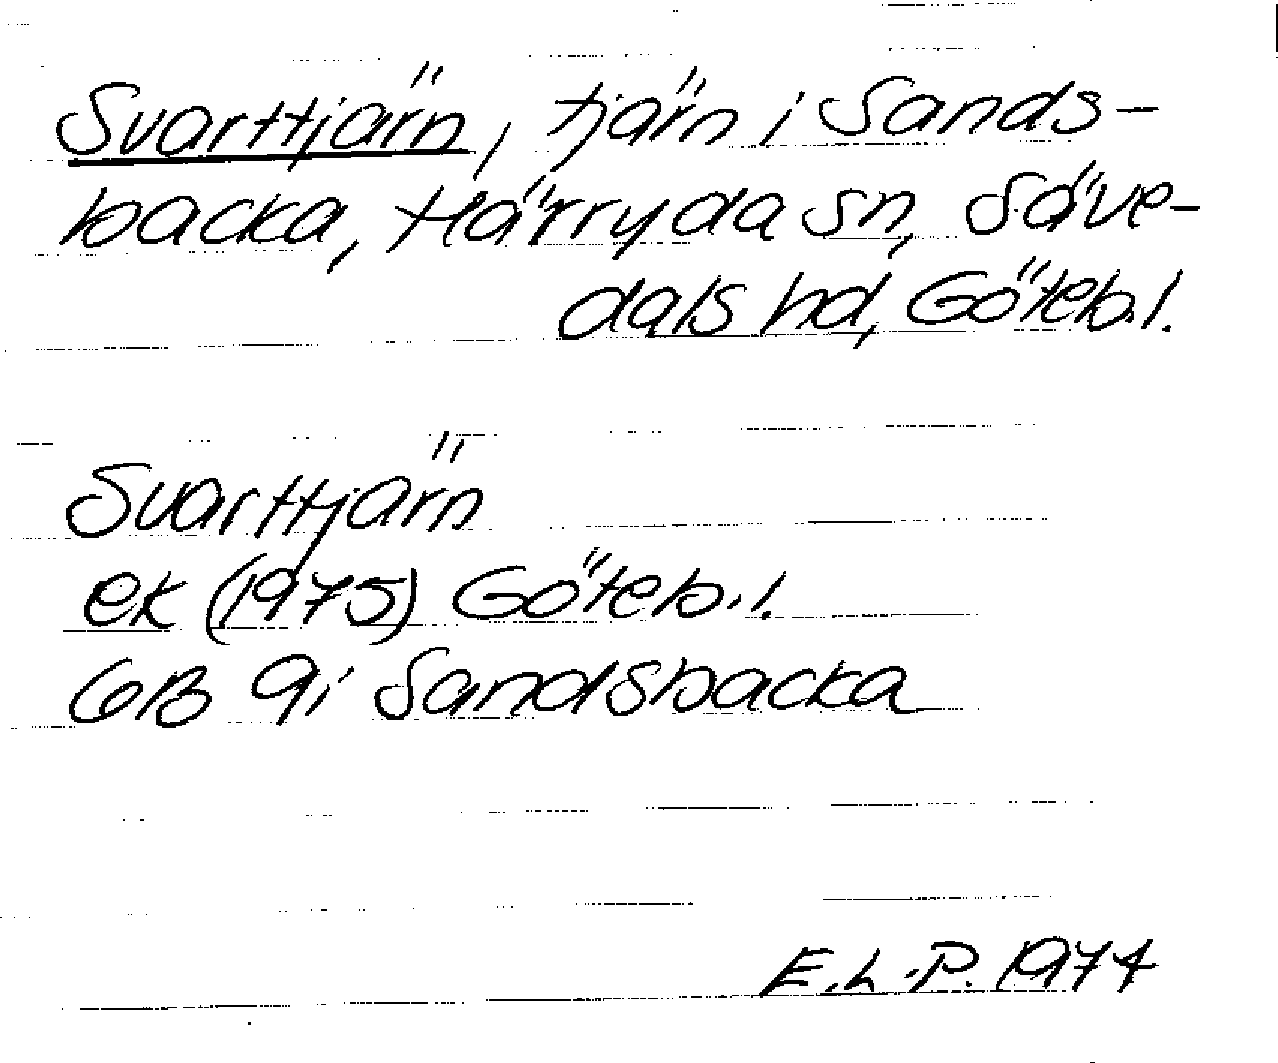 Svarttjärn, tjärn i Sands-
backa, Härryda sn, Säve-
dals hd, Göteb. l.
Svarttjärn
ek (1975) Göteb. l.
6B 9i Sandsbacka
E.L.P. 1974